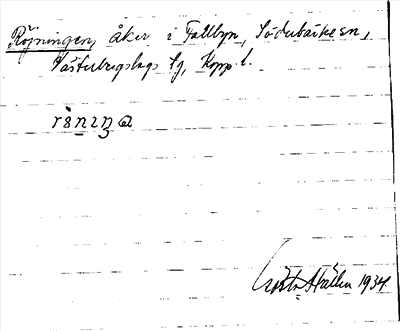 Röjningen, åker i Fallbyn, Söderbärke sn,
Västerbergslags tg, Kopp. l.
Gösta Hallin 1934.